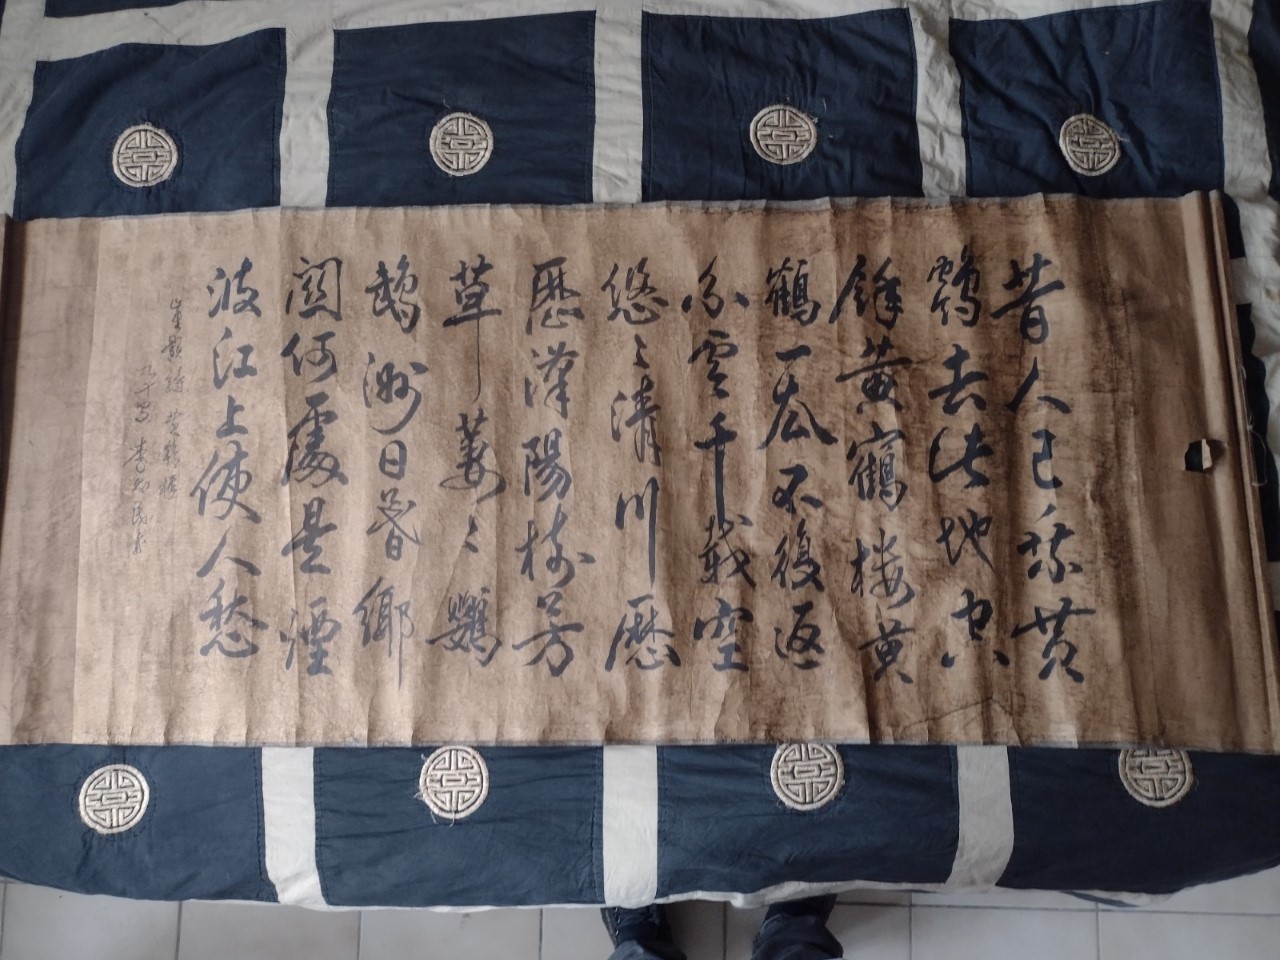 昔人已乘黃
鶴去此地空
餘黃鶴樓黃
鶴一去不復返
白雲千載空
悠〻清川歷
歷漢陽樹芳
草萋〻鸚
鵡洲日暮鄉
關何處是煙
波江上使人愁
崔顥詩 黃鶴樓
李 民